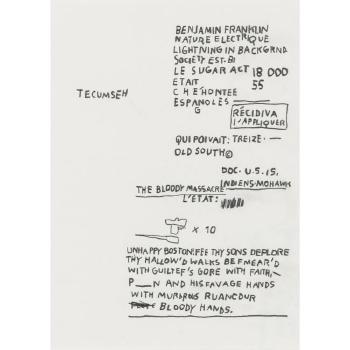 BENJAMIN FRANKLIN
NATURE ELECTRIQUE
LIGHTNING IN BACKGRND
SOCIETY EST. BI
LE SUGAR ACT 18 000
ETAIT 55
TECUMSEH
CHEHONTEE
ESPANOLES
G
RÉCIDIVA
I'APPLIQUER
QUI POIVAIT: TREIZE —
OLD SOUTH©
DOC. U.S.15.
INDIENS-MOHAWK
THE BLOODY MASSACRE
L'ETAT:
x 10
UNHAPPY BOSTON! FEE THY SONS DEPLORE
THY HALLOW'D WALKS BEFMEAR'D
WITH GUILTEF'S GORE WITH FAITH,
P__N AND HIS FAVAGE HANDS
WITH MURDROUS RUANCOUR
BLOODY HANDS.